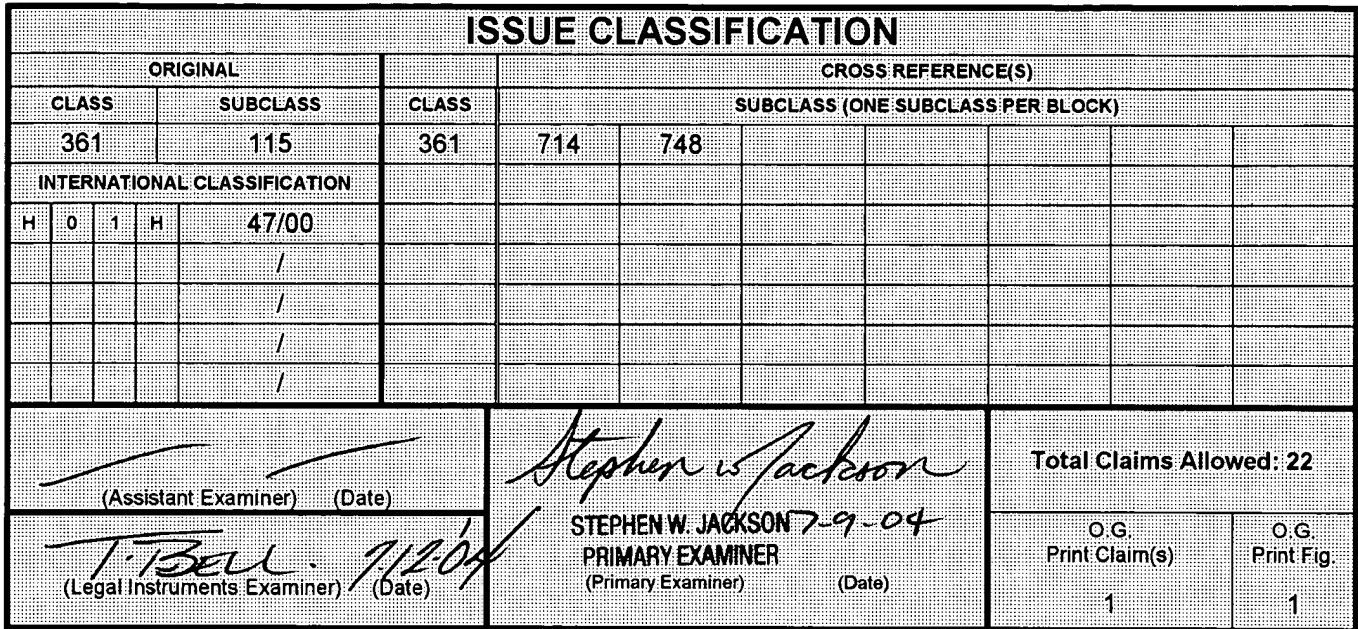 ISSUE CLASSIFICATION
ORIGINAL CROSS REFERENCE(S)
CLASS SUBCLASS CLASS SUBCLASS (ONE SUBCLASS PER BLOCK)
361 115 361 714 748
INTERNATIONAL CLASSIFICATION
H 0 1 H 47/00
/
/
/
/
(Assistant Examiner) (Date)
T. BELL. 7/12/04
(Legal Instruments Examiner) (Date)
Stephen W Jackson
STEPHEN W. JACKSON 7-9-04
PRIMARY EXAMINER
(Primary Examiner) (Date)
Total Claims Allowed: 22
O.G.
Print Claim(s)
1
O.G.
Print Fig.
1